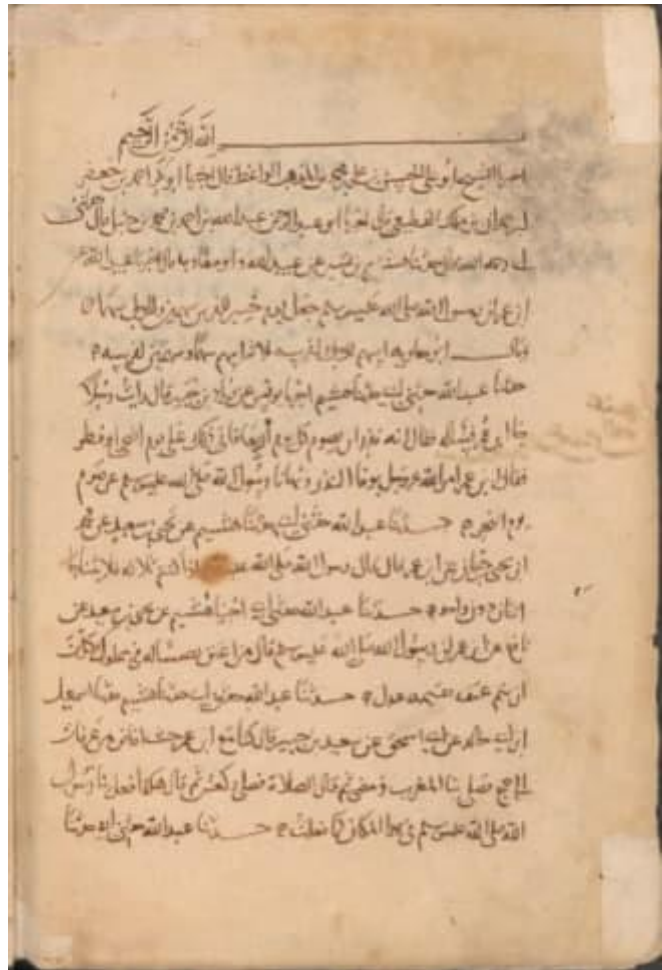 بسم الله الرحمن الرحيم
اخبرنا الشيخ ابو علي الحسن بن علي بن محمد بن المذهب الواعظ قال اخبرنا ابو بكر احمد بن جعفر
بن حمدان بن مالك القطيعي قال اخبرنا ابو عبد الرحمن عبد الله بن احمد بن محمد بن حنبل قال حدثني
ابي رحمه الله قال حدثنا هشيم بن بشير عن عبيد الله وابو معاوية قال اخبرنا عبيد الله عن
ابن عمر ان رسول الله صلى الله عليه وسلم جعل يوم خيبر للفرس سهمين وللرجل سهما
وقال ابو معاوية اسهم للرجل ولفرسه ثلاثة اسهم سهما له وسهمين لفرسه
حدثنا عبد الله حدثني ابي حدثنا هشيم اخبرنا يونس عن زياد بن جبير قال رايت رجلا
جا ابن عمر فساله فقال انه نذر ان يصوم كل يوم اربعا فاتى ذلك على يوم اضحى او فطر
فقال ابن عمر امر الله عز وجل بوفا النذر ونهانا رسول الله صلى الله عليه وسلم عن صوم
يوم النحر حدثنا عبد الله حدثني ابي حدثنا هشيم عن يحيى بن سعيد عن محمد
بن يحيى بن حبان عن ابن عمر قال قال رسول الله صلى الله اذا كنتم ثلاثة فلا يتناجا
اثنان دون واحد حدثنا عبد الله حدثني ابي اخبرنا هشيم عن يحيى بن سعيد عن
نافع عن ابن عمر ان رسول الله صلى الله عليه وسلم قال من اعتق نصيبا له في مملوك كلف
ان يتم عتقه بقيمة عدل حدثنا عبد الله حدثني ابي حدثنا هشيم حدثنا اسمعيل
ابن ابي خالد عن ابي اسحق عن سعيد بن جبير قال كنا مع ابن عمر حيث افاض من عرفات
الى جمع فصلى بنا المغرب ومضى ثم قال الصلاة فصلى ركعتين ثم قال هكذا فعل بنا رسول
الله صلى الله عليه وسلم في هذا المكان كما فعلت حدثنا عبد الله حدثني ابي حدثنا